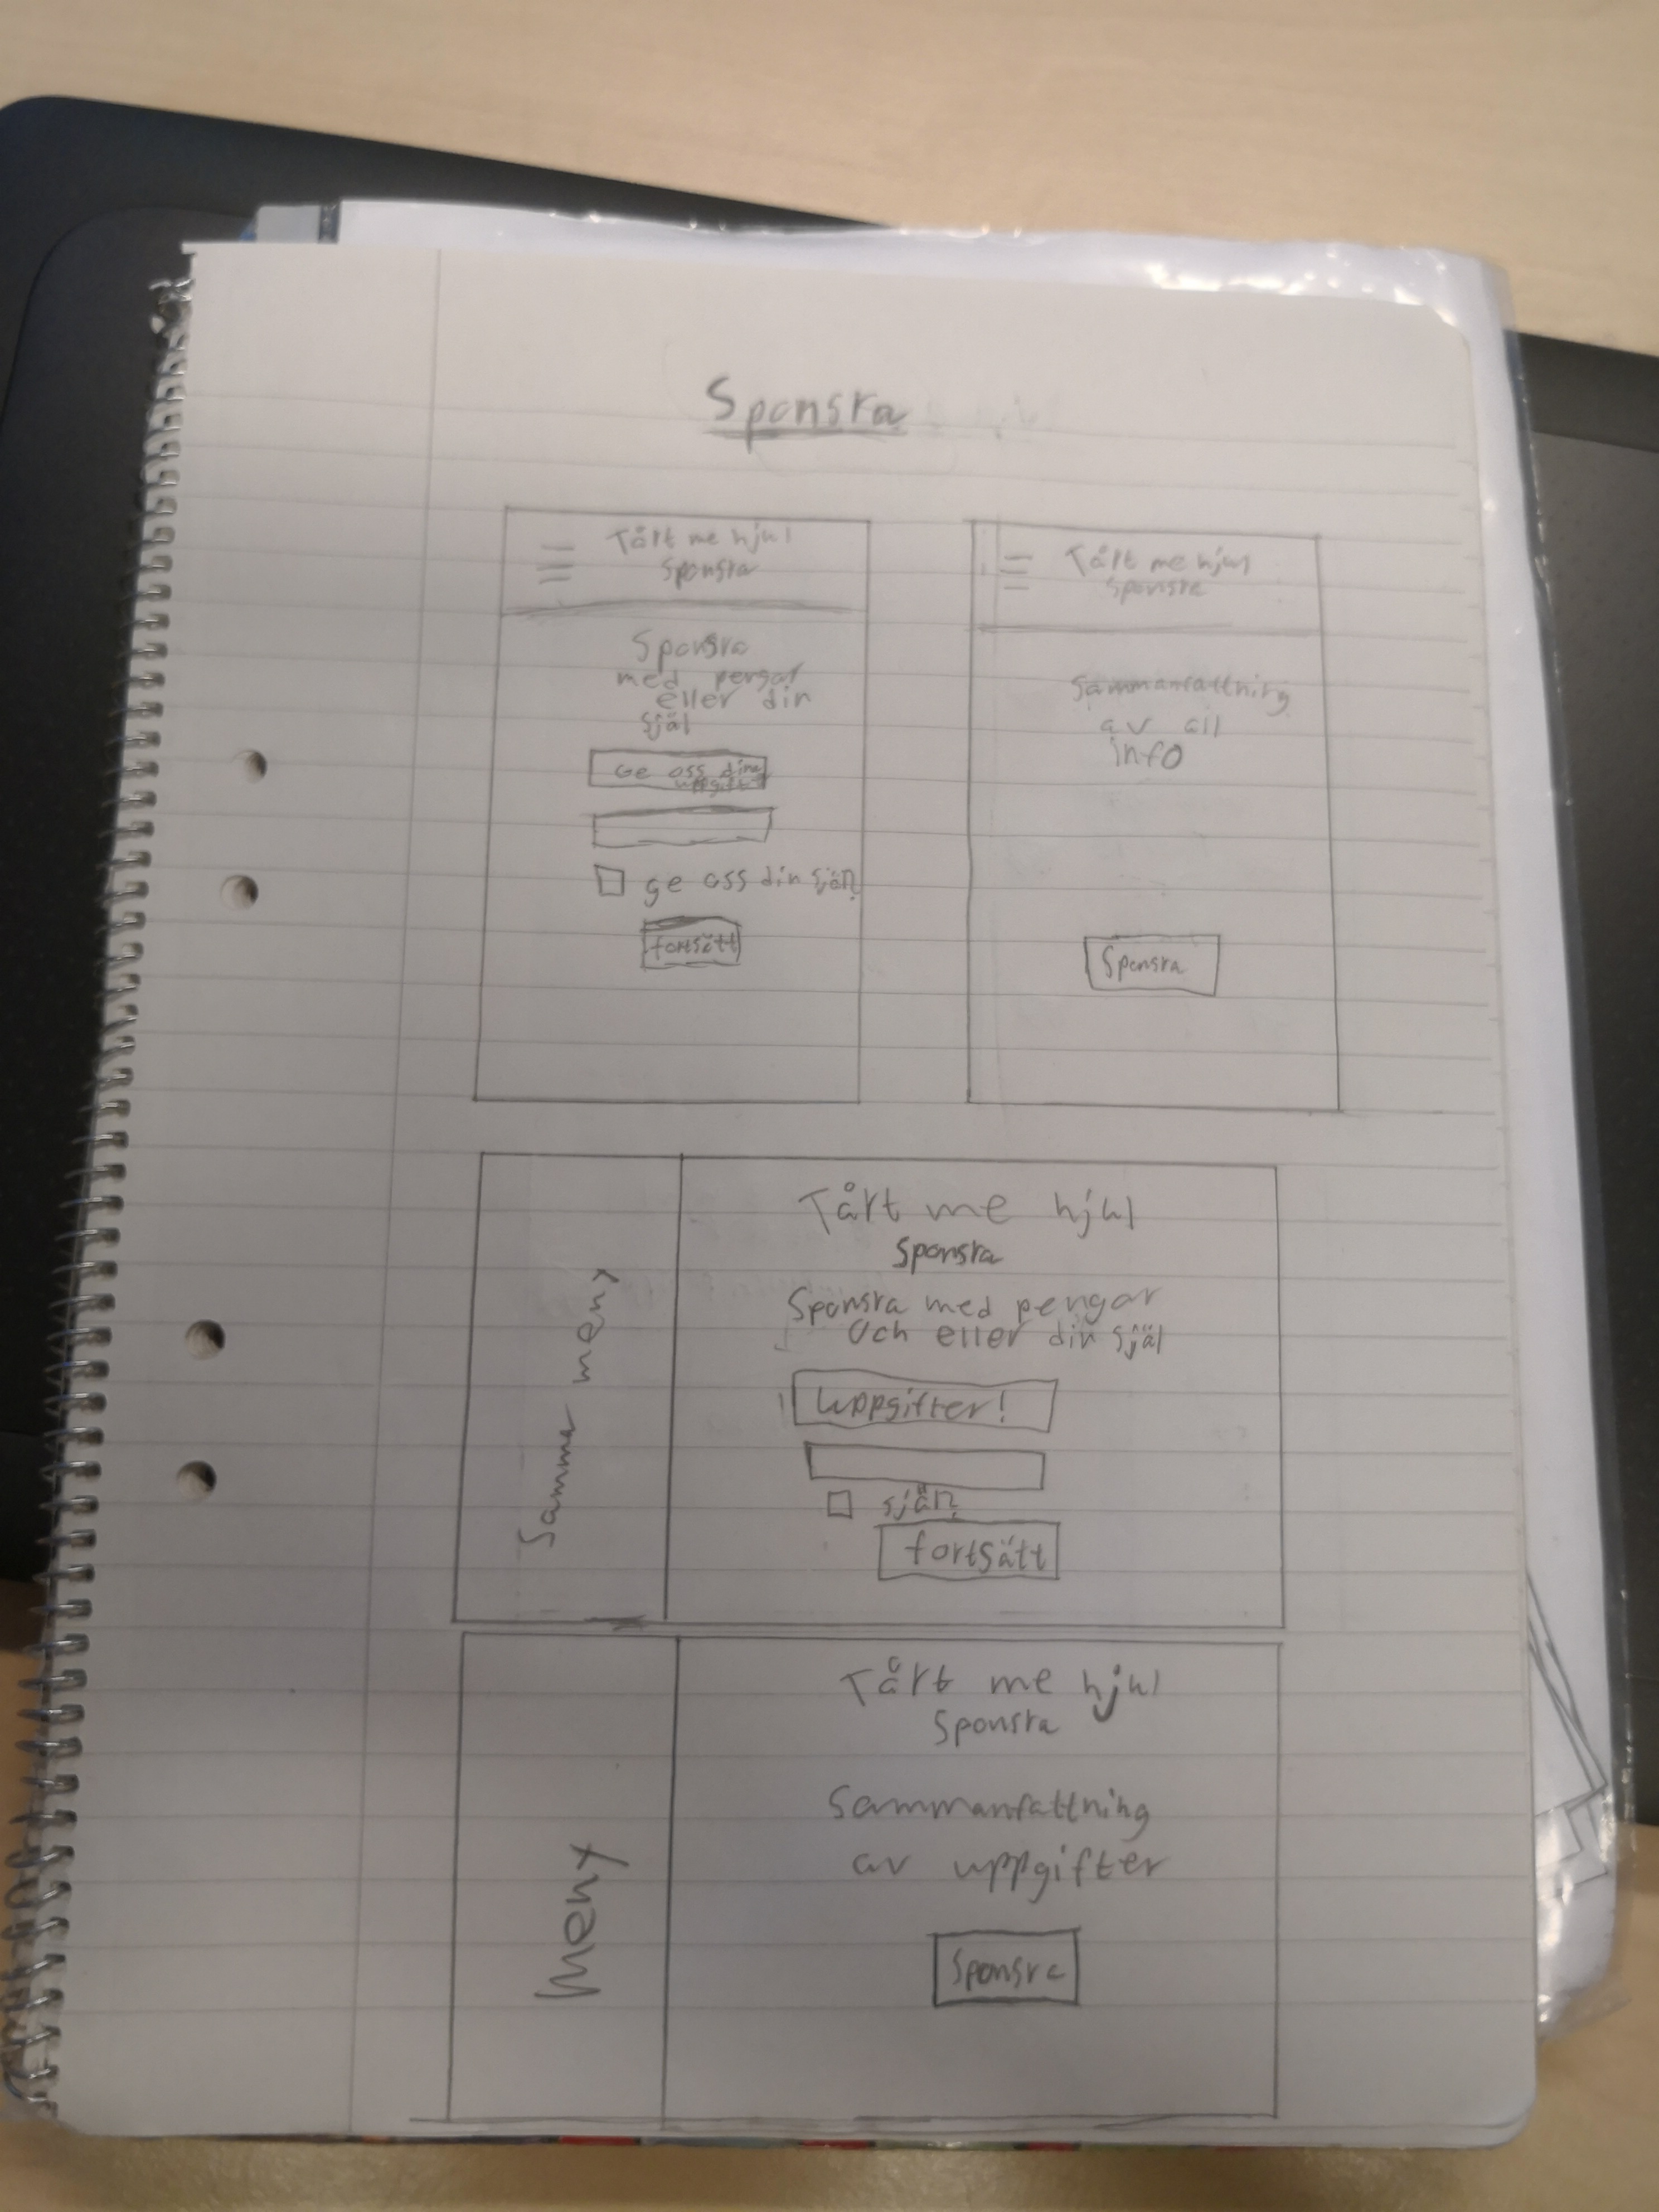 Sponsra
Tårt me hjul
Sponsra
Sponsra
med pengar
eller din
själ
Ge oss dina
uppgifter
ge oss din själ?
fortsätt
Tårt me hjul
Sponsra
Sammanfattning
av all
info
Sponsra
Samma meny
Tårt me hjul
Sponsra
Sponsra med pengar
och eller din själ
Uppgifter!
själ?
fortsätt
Meny
Tårt me hjul
Sponsra
Sammanfattning
av uppgifter
Sponsra